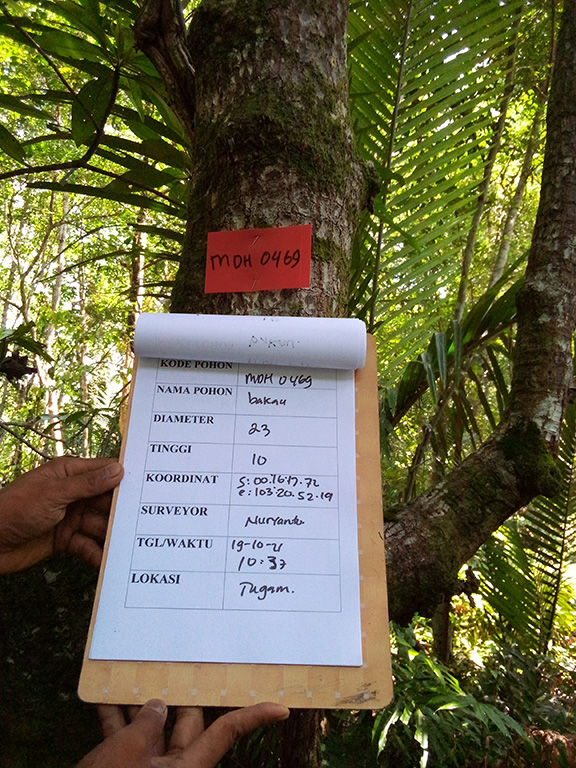 MDH 0469
KODE POHON MDH 0469
NAMA POHON bakau
DIAMETER 23
TINGGI 10
KOORDINAT S: 00.16.17.72
e: 103.20.52.19
SURVEYOR Nuryanto
TGL/WAKTU 19-10-21
10:37
LOKASI Tugam.